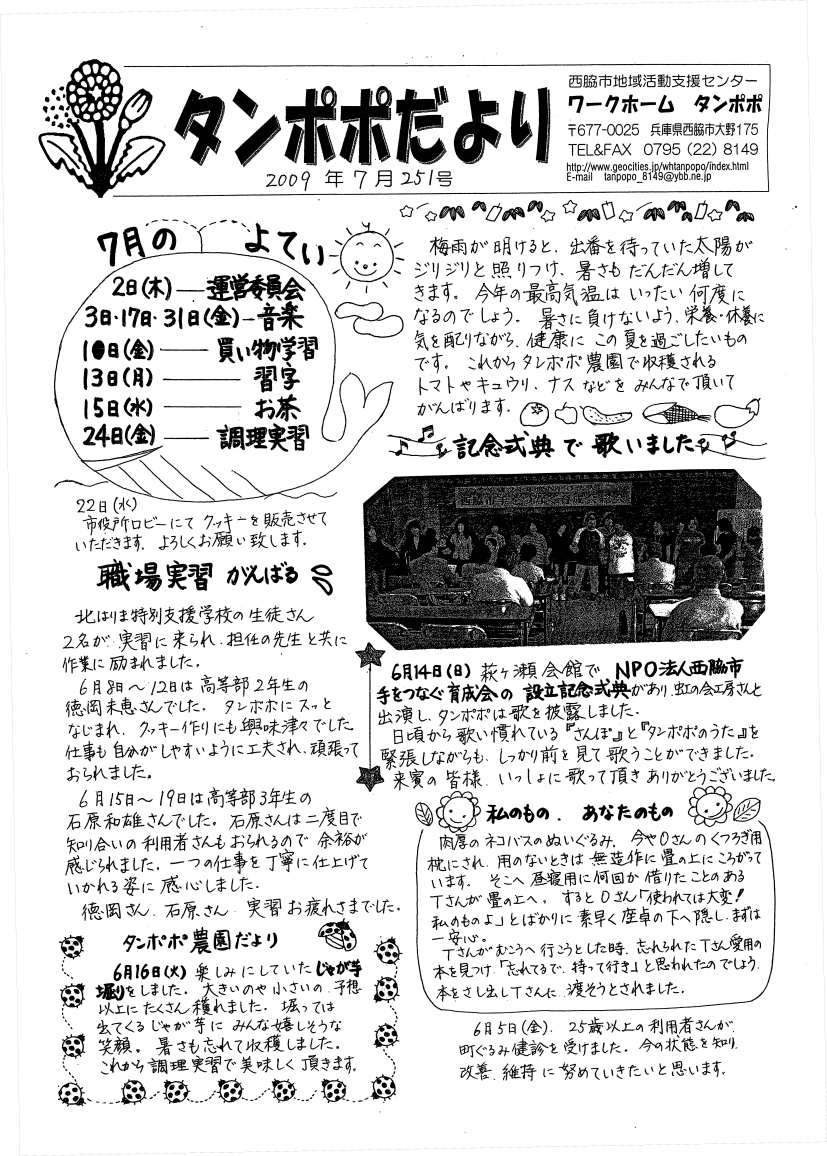 タンポポだより
2009年7月251号
西脇市地域活動支援センター
ワークホーム タンポポ
〒677-0025 兵庫県西脇市大野175
TEL&FAX 0795 (22) 8149
http://www.geocities.jp/whtanpopo/index.html
E-mail tanpopo_8149@ybb.ne.jp
7月の よてい
2日(木)―運営委員会
3日・17日・31日(金)―音楽
10日(金)―買い物学習
13日(月)―習字
15日(水)―お茶
24日(金)―調理実習
22日(水)
市役所ロビーにて クッキーを販売させて
いただきます。よろしくお願い致します。
梅雨が明けると、出番を待っていた太陽が
ジリジリと照りつけ、暑さもだんだん増して
きます。今年の最高気温はいったい何度に
なるのでしょう。暑さに負けないよう、栄養・休養に
気を配りながら、健康にこの夏を過ごしたいもの
です。これからタンポポ農園で収穫される
トマトやキュウリ、ナスなどをみんなで頂いて
がんばります。
職場実習 がんばる
北はりま特別支援学校の生徒さん
2名が、実習に来られ、担任の先生と共に
作業に励まれました。
6月8日〜12日は高等部2年生の
徳岡未恵さんでした。タンポポにスッと
なじまれ、クッキー作りにも興味津々でした。
仕事も自分がしやすいように工夫され、頑張って
おられました。
6月15日〜19日は高等部3年生の
石原和雄さんでした。石原さんは二度目で
知り合いの利用者さんもおられるので余裕が
感じられました。一つの仕事を丁寧に仕上げて
いかれる姿に感心しました。
徳岡さん、石原さん 実習お疲れさまでした。
記念式典で歌いました
6月14日(日) 萩ヶ瀬会館で NPO法人西脇市
手をつなぐ育成会の設立記念式典があり、虹の会工房さんと
出演し、タンポポは歌を披露しました。
日頃から歌い慣れている『さんぽ』と『タンポポのうた』を
緊張しながらも、しっかり前を見て歌うことができました。
来賓の皆様、いっしょに歌って頂きありがとうございました。
タンポポ農園だより
6月16日(火) 楽しみにしていたじゃが芋
堀りをしました。大きいのや小さいの、予想
以上にたくさん穫れました。堀っては
出てくるじゃが芋にみんな嬉しそうな
笑顔。暑さも忘れて収穫しました。
これから調理実習で美味しく頂きます。
私のもの、あなたのもの
肉厚のネコバスのぬいぐるみ、今やOさんのくつろぎ用
枕にされ、用のないときは無造作に畳の上にころがって
います。そこへ昼寝用に何回か借りたことのある
Tさんが畳の上へ。するとOさん「使われては大変!
私のものよ」とばかりに素早く座卓の下へ隠し、まずは
一安心。
Tさんがむこうへ行こうとした時、忘れられたTさん愛用の
本を見つけ、「忘れてるで、持って行き」と思われたのでしょう、
本をさし出しTさんに渡そうとされました。
6月5日(金)、25歳以上の利用者さんが、
町ぐるみ健診を受けました。今の状態を知り、
改善、維持に努めていきたいと思います。